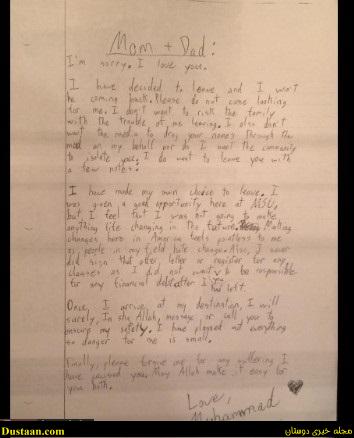 Mom + Dad:
I'm sorry. I love you.
I have decided to leave and I won't
be coming back. Please do not come looking
for me. I don't want to risk the family
with the trouble of me leaving. I also don't
want the media to drag your names through the
mud on my behalf nor do I want the community
to isolate you. I do want to leave you with
a few notes.
I have made my own choice to leave. I
was given a good opportunity here at MSU,
but I feel that I was not going to make
anything life changing in the future. Making
changes here in America feels pointless to me
as people in my field hate change. Also, I never
did sign that offer letter or register for any
classes as I did not want you to be responsible
for any financial debt after I had left.
Once I arrive at my destination, I will
surely, In sha Allah, message or call you to
ensure my safety. I have planned out everything
so danger for me is small.
Finally, please forgive me for any suffering I
have caused you. May Allah make it easy for
you both.
Love,
Muhammad
Dustaan.com
مجله خبری دوستان